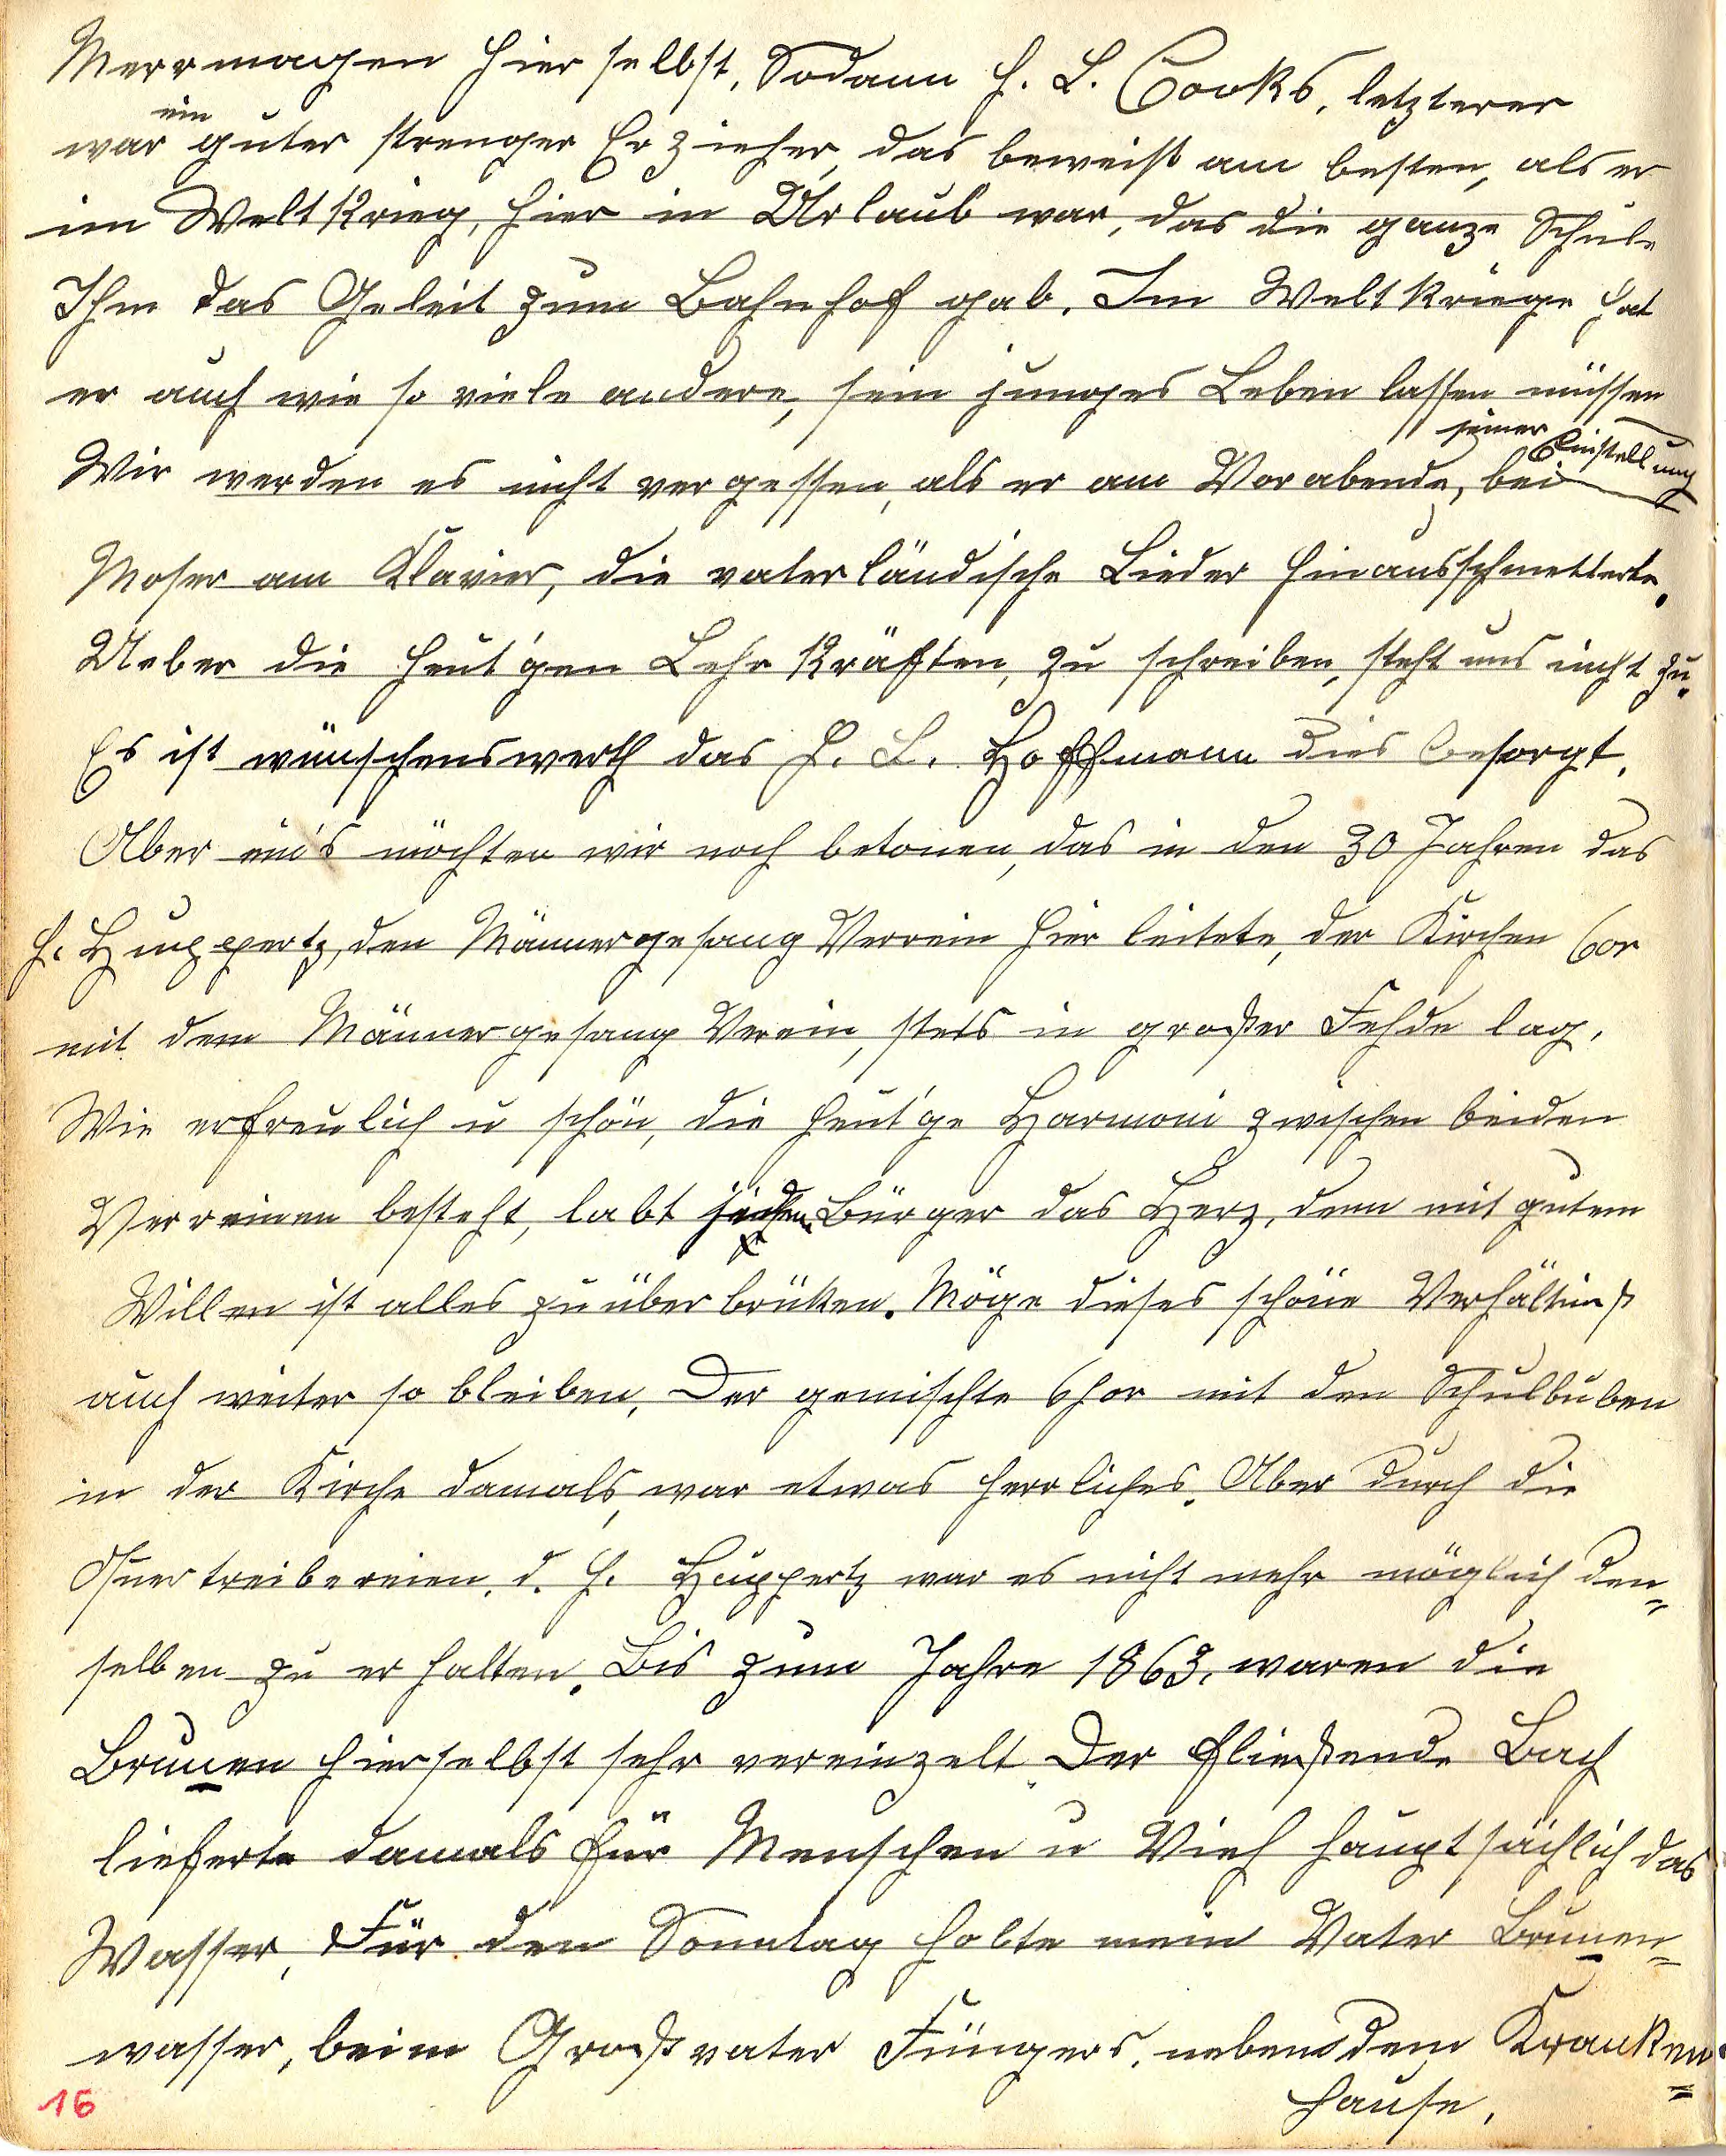 Merrmagen hier selbst, Sodann H. L. Cooks, letzterer
war ein guter strenger Erzieher, das beweißt am besten, als er
im Weltkrieg, hier in Urlaub war, das die ganze Schule
Ihm das Geleit zum Bahnhof gab. Im Weltkriege hat
er auch wie so viele andere, sein junges Leben lassen müssen
Wir werden es nicht vergessen, als er am Vorabende, bei seiner Einstellung
Moser am Klavier, die vaterländische Lieder hinausschmetterte.
Ueber die heut'gen Lehrkräften, zu schreiben, steht uns nicht zu.
Es ist wünschenswerth das H. L. Hoffmann dies besorgt.
Aber ein's möchten wir noch betonen, das in den 30 Jahren das
H. Huppertz, den Männergesang Verrein hier leitete, der Kirchen Cor
mit dem Männergesang Verein, stets in großer Fehde lag.
Wie erfreulich u schön, die heut'ge Harmoni zwischen beiden
Verreinen besteht, labt jeden Bürger das Herz, denn mit gutem
Willen ist alles zu überbrüken. Möge dieses schöne Verhältniß
auch weiter so bleiben, Der gemischte Chor mit den Schulbuben
in der Kirche damals, war etwas herrliches. Aber durch die
Quertreibereien, d. H. Huppertz war es nicht mehr möglich den=
selben zu erhalten. Bis zum Jahre 1863, waren die
Brunen hierselbst sehr vereinzelt. Der fließende Bach
lieferte damals für Menschen u Vieh hauptsächlich das
Wasser, Für den Sonntag holte mein Vater Brunen=
wasser, beim Großvater Füngers, neben dem Kranken=
hause.
16